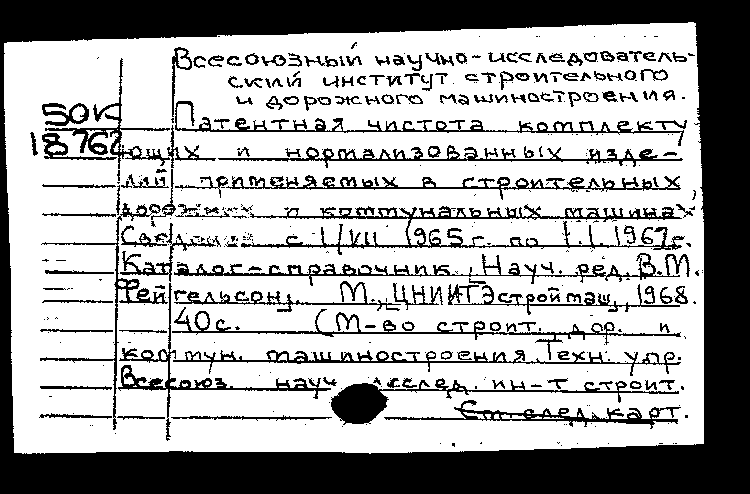 Всесоюзный научно-исследователь-
ский институт строительного
и дорожного машиностроения.
50К
18762
Патентная чистота комплекту
ющих и нормализованных изде-
лий применяемых в строительных,
дорожных и коммунальных машинах
Сведения с 1/VII 1965 г. по 1.I. 1967г.
Каталог-справочник, Науч. ред. В.М.
Фейгельсон, М., ЦНИИТЭстроймаш, 1968.
40с. (М-во строит. дор. и
коммун. машиностроения Техн. упр.
Всесоюз. науч исслед. ин-т строит.
См след. карт.